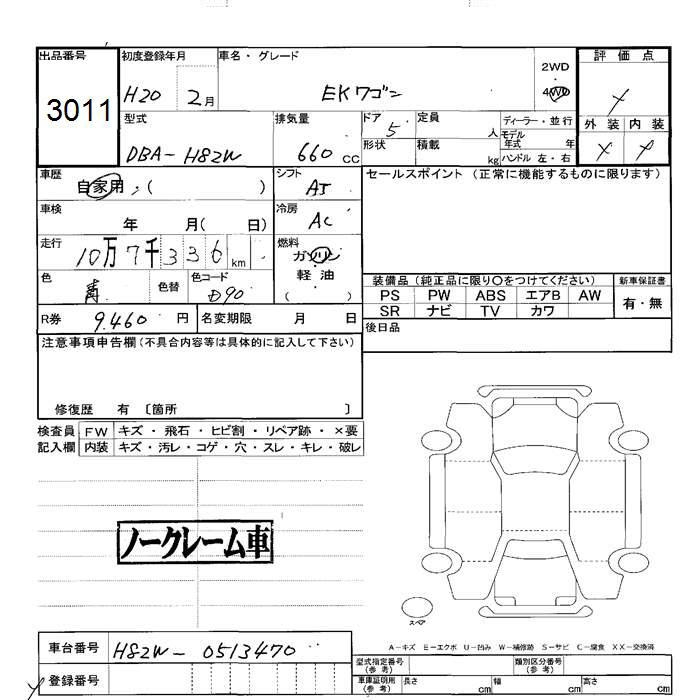 出品番号
3011
初度登録年月
H20 2月
車名・グレード
EKワゴン
2WD
4WD
評価点
外装 内装
型式
DBA-H82W
排気量
660 CC
ドア 5
形状
定員 人
積載 kg
ディーラー・並行
モデル年式 年
ハンドル 左・右
車歴
自家用・( )
シフト
AT
セールスポイント (正常に機能するものに限ります)
車検
年 月( 日)
冷房
AC
走行
10万7千336km
燃料
ガソリン
軽油
( )
色
青
色替
色コード
D90
装備品 (純正品に限り○をつけてください)
PS PW ABS エアB AW
SR ナビ TV カワ
新車保証書
有・無
R券 9.460 円
名変期限 月 日
後日品
注意事項申告欄 (不具合内容等は具体的に記入して下さい)
修復歴 有 〔箇所 〕
検査員
記入欄
FW キズ・飛石・ヒビ割・リペア跡・×要
内装 キズ・汚レ・コゲ・穴・スレ・キレ・破レ
ノークレーム車
スペア
A-キズ E-エクボ U-凹み W-補修跡 S-サビ C-腐食 XX-交換済
車台番号 H82W-0513470
登録番号
型式指定番号
(参考)
類別区分番号
(参考)
車庫証明用
(参考)
長さ cm
幅 cm
高さ cm